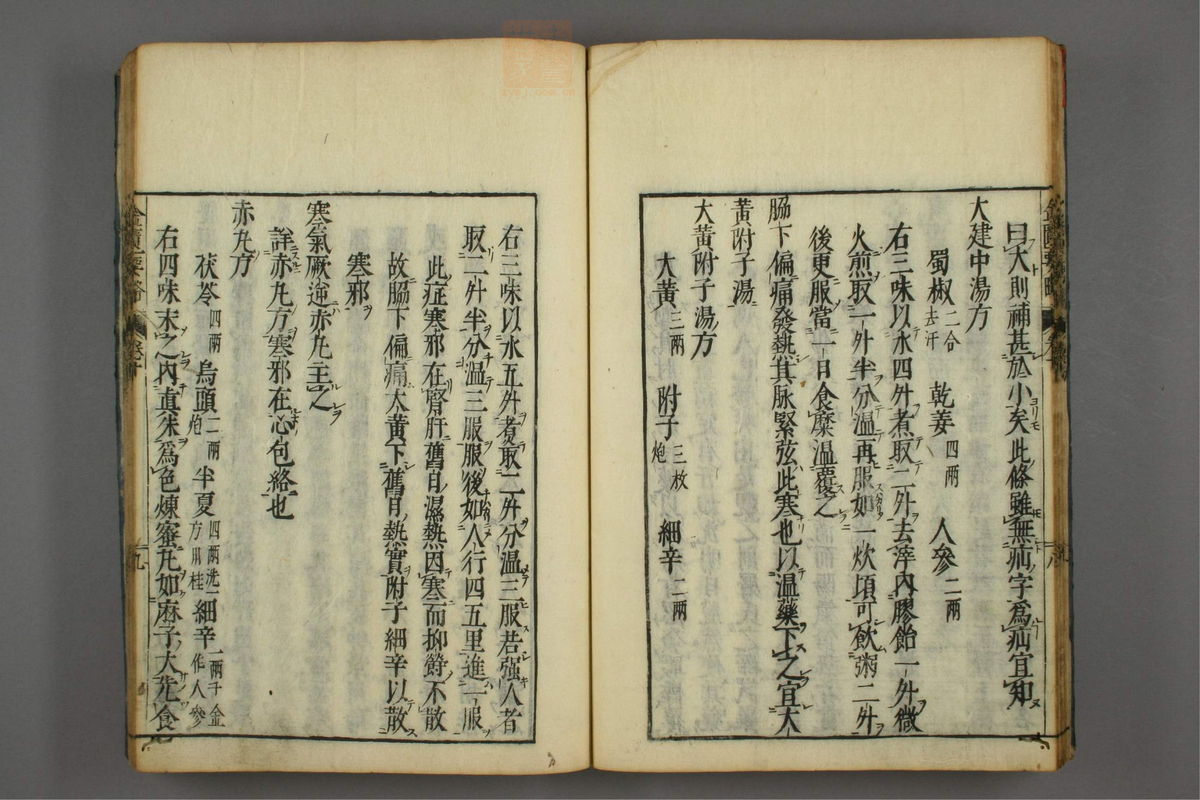 曰大則補甚於小矣此條雖無疝字爲疝宜知
大建中湯方
蜀椒二合去汗 乾姜四兩 人參二兩
右三味以水四升煮取二升去滓內膠飴一升微
火煎取一升半分温再服如一炊頃可飲粥二升
後更服當一日食糜温覆之
脇下偏痛發熱其脉緊弦此寒也以温藥下之宜大
黃附子湯
大黃附子湯方
大黃三兩 附子三枚炮 細辛二兩
右三味以水五升煮取二升分温三服若强人者
取二升半分温三服服後如人行四五里進一服
此症寒邪在腎肝舊有濕熱因寒而抑欝不散
故脇下偏痛大黃下舊有熱實附子細辛以散
寒邪
寒氣厥逆赤丸主之
詳赤丸方寒邪在心包絡也
赤丸方
茯苓四兩 烏頭二兩炮 半夏四兩洗一方用桂 細辛一兩千金作人參
右四味末之內眞朱爲色煉蜜丸如麻子大先食
金匱要略 卷中 九